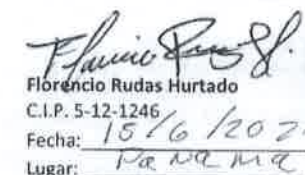 Florencio Rudas Hurtado
C.I.P. 5-12-1246
Fecha: 15/6/202
Lugar: Panama